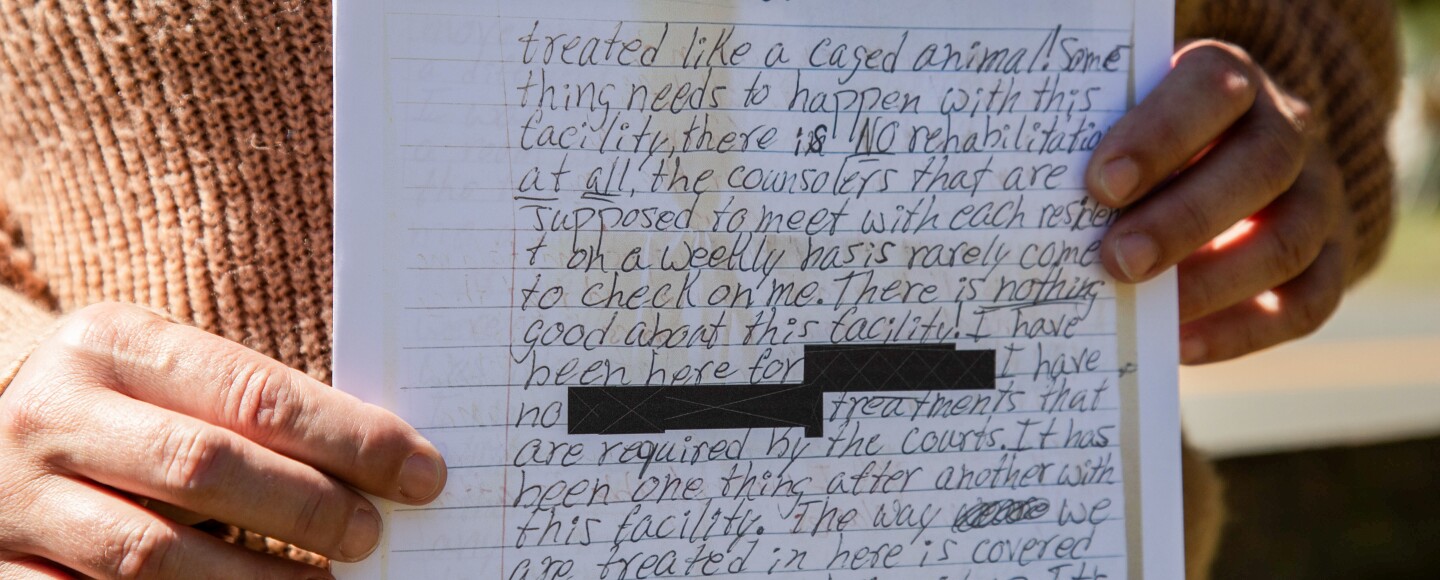 treated like a caged animal! Some
thing needs to happen with this
facility, there is NO rehabilitatio
at all, the counsolers that are
supposed to meet with each residen
t on a weekly basis rarely come
to check on me. There is nothing
good about this facility! I have
been here for I have
no treatments that
are required by the courts. It has
been one thing after another with
this facility. The way we
are treated in here is covered